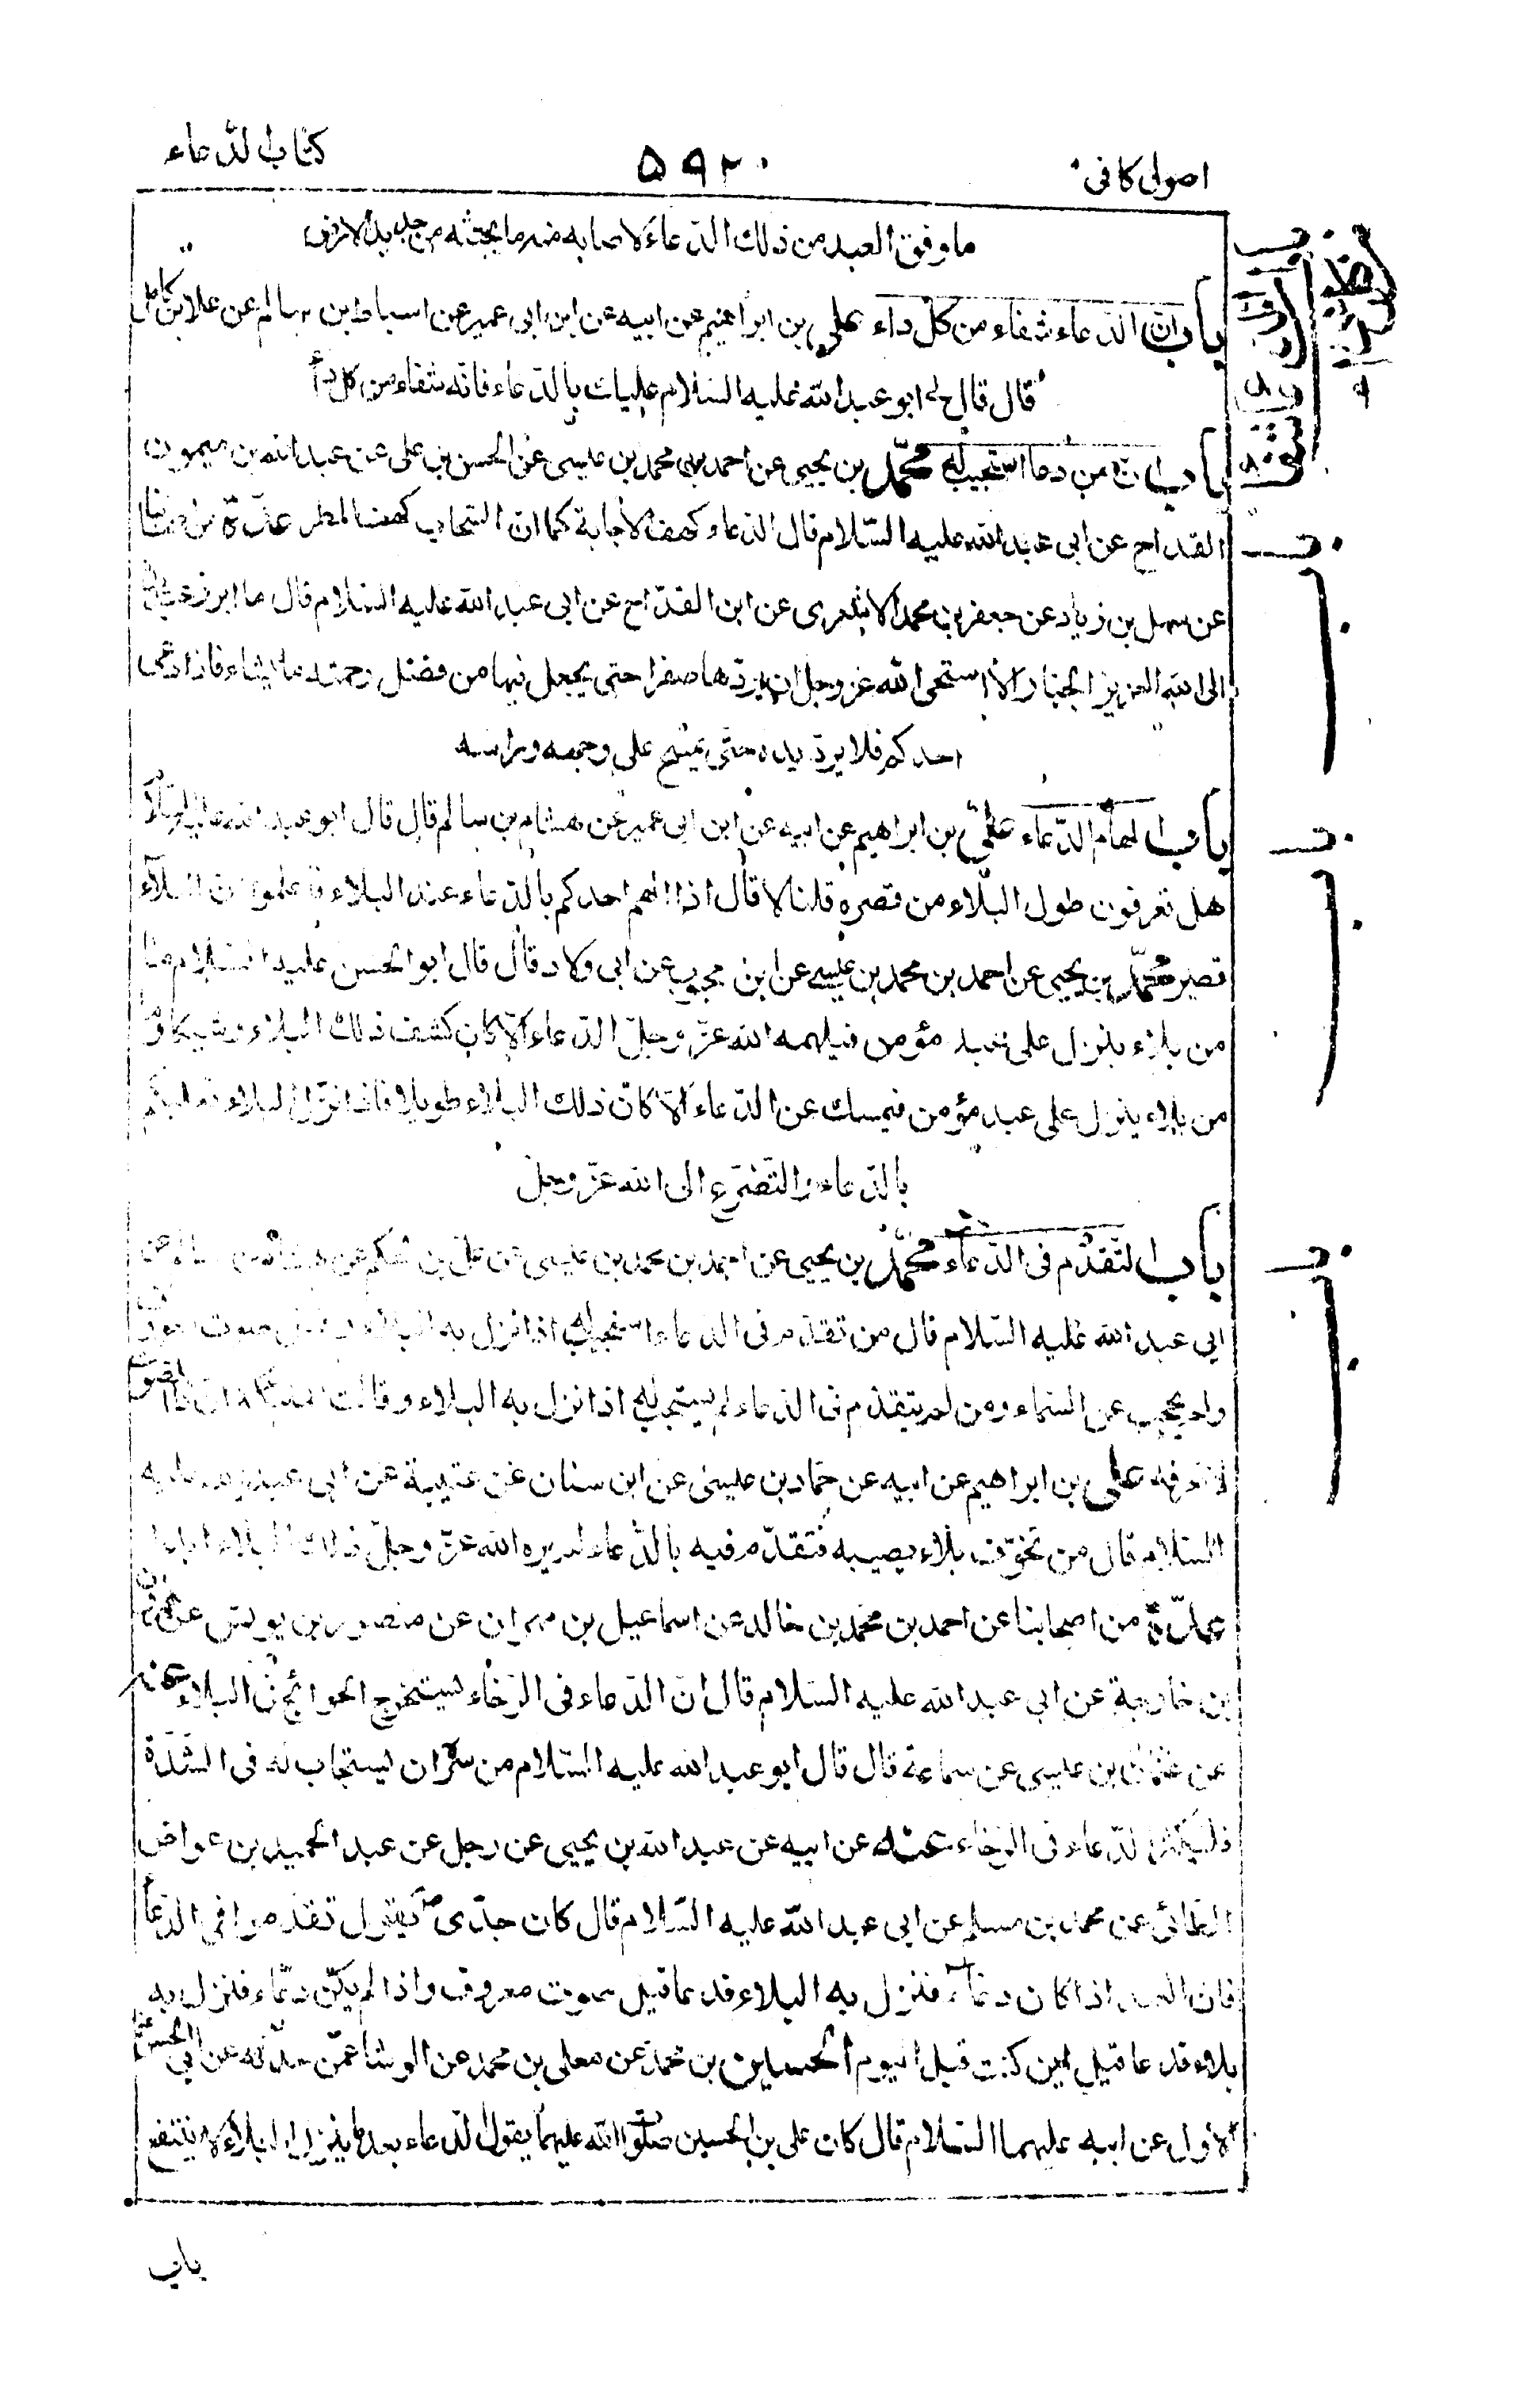 اصول كافى
۵۹۲
كتاب الدعاء
ما وفق العبد من ذلك الدعاء لاصابه منه ما يجثه من جديد الارض
باب ان الدعاء شفاء من كل داء على بن ابراهيم عن ابيه عن ابن ابى عمير عن اسباط بن سالم عن علا بن كامل
قال قال لى ابو عبد الله عليه السلام عليك بالدعاء فانه شفاء من كل داء
باب ان من دعا استجيب له محمّد بن يحيى عن احمد بن محمد بن عيسى عن الحسن بن على عن عبد الله بن ميمون
القداح عن ابى عبد الله عليه السّلام قال الدعاء كهف الاجابة كما ان السّحاب كهف المطر عدّة من اصحابنا
عن سهل بن زياد عن جعفر بن محمد الاشعرى عن ابن القدّاح عن ابى عبد الله عليه السلام قال ما ابرز عبد يده
الى الله العزيز الجبار الا استحى الله عز وجل ان يردّها صفرا حتى يجعل فيها من فضل رحمته ما يشاء فاذا دعى
احدكم فلا يردّ يده حتى يمسح على وجهه وراسه
باب الهام الدّعاء علىّ بن ابراهيم عن ابيه عن ابن ابى عمير عن هشام بن سالم قال قال ابو عبد الله عليه السلام
هل تعرفون طول البلاء من قصره قلنا لا قال اذا الهم احدكم بالدّعاء عند البلاء فاعلموا ان البلاء
قصير محمّد بن يحيى عن احمد بن محمد بن عيسى عن ابن محبوب عن ابى ولاد قال قال ابو الحسن عليه السلام ما
من بلاء ينزل على عبد مؤمن فيلهمه الله عزّ وجلّ الدّعاء الّا كان كشف ذلك البلاء وشيكا وما
من بلاء ينزل على عبد مؤمن فيمسك عن الدّعاء الّا كان ذلك البلاء طويلا فاذا نزل البلاء فعليكم
بالدّعاء والتّضرّع الى الله عزّ وجلّ
باب التّقدّم فى الدّعاء محمّد بن يحيى عن احمد بن محمد بن عيسى عن علىّ بن الحكم عن هشام بن سالم عن
ابي عبد الله عليه السّلام قال من تقدّم فى الدعاء استجيب له اذا نزل به البلاء صوت معروف
ولم يحجب عن السّماء ومن لم يتقدّم فى الدّعاء لم يستجب له اذا نزل به البلاء وقالت الملائكة ان ذا الصوت
لا نعرفه على بن ابراهيم عن ابيه عن حمّاد بن عيسى عن ابن سنان عن عتيبة عن ابى عبد الله عليه
السّلام قال من تخوّف بلاء يصيبه فتقدّم فيه بالدّعاء لم يره الله عزّ وجلّ ذلك البلاء ابدا
عدّة من اصحابنا عن احمد بن محمد بن خالد عن اسماعيل بن مهران عن منصور بن يونس عن هارون
بن خارجة عن ابي عبد الله عليه السّلام قال ان الدّعاء فى الرّخاء يستخرج الحوائج فى البلاء عنه
عن عثمان بن عيسى عن سماعة قال قال ابو عبد الله عليه السّلام من سرّه ان يستجاب له فى الشّدّة
فليكثر الدّعاء فى الرّخاء عنه عن ابيه عن عبد الله بن يحيى عن رجل عن عبد الحميد بن عواض
الطائى عن محمد بن مسلم عن ابى عبد الله عليه السّلام قال كان جدّى يقول تقدموا فى الدّعاء
فان العبد اذا كان دعّاء فنزل به البلاء فدعا قيل صوت معروف واذا لم يكن دعّاء فنزل به
بلاء فدعا قيل اين كنت قبل اليوم الحسين بن محمّد عن معلى بن محمد عن الوشا عمّن حدّثه عن ابي الحسن
الاول عن ابيه عليهما السّلام قال كان على بن الحسين صلوات الله عليهما يقول الدّعاء بعد ما ينزل البلاء لا ينتفع
باب